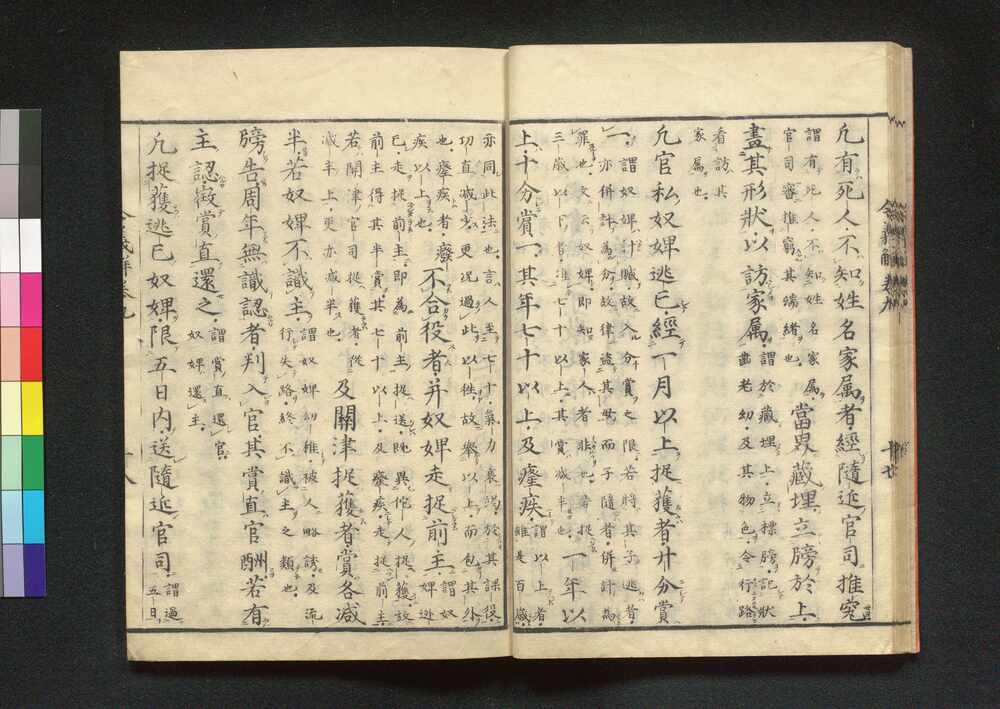 凡有死人不知姓名家属者經隨近官司推究
謂有死人不知姓名家属
官司審推窮其端緒也
當界藏埋立牓於上
盡其形狀以訪家属
謂於藏埋上立標牓記狀
齒老幼及其物色令行路
看訪其
家属也
凡官私奴婢逃亡經一月以上捉獲者廿分賞
一
謂奴婢計贓故入分賞之限若將其子逃者
亦併計為分故律
而子随者併計為
三歳以下
七十以上其賞減半也
一年以
上十分賞一其年七十以上及癃疾
謂以上者
雖是百歳
亦同此法也言人至七十氣力衰
於其課役
功直減少更況過此以往故舉以上而包其外
也癃疾者癈
疾以上也
不合役者并奴婢走捉前主
謂奴
婢逃
亡走捉前主即為前主捉送
異佗人捉獲故
前主得其半賞其七十以上及癃疾走捉前主
若關津官司捉獲者從
減半上更亦減半也
及關津捉獲者賞各減
半若奴婢不識主
謂奴婢幼稚被人略誘及流
行失路終不識主之類也
牓告周年無識認者判入官其賞直官酬若有
主認徴賞直還之
謂賞直還官
奴婢還主
凡捉獲逃亡奴婢限五日内送隨近官司
謂過
五日